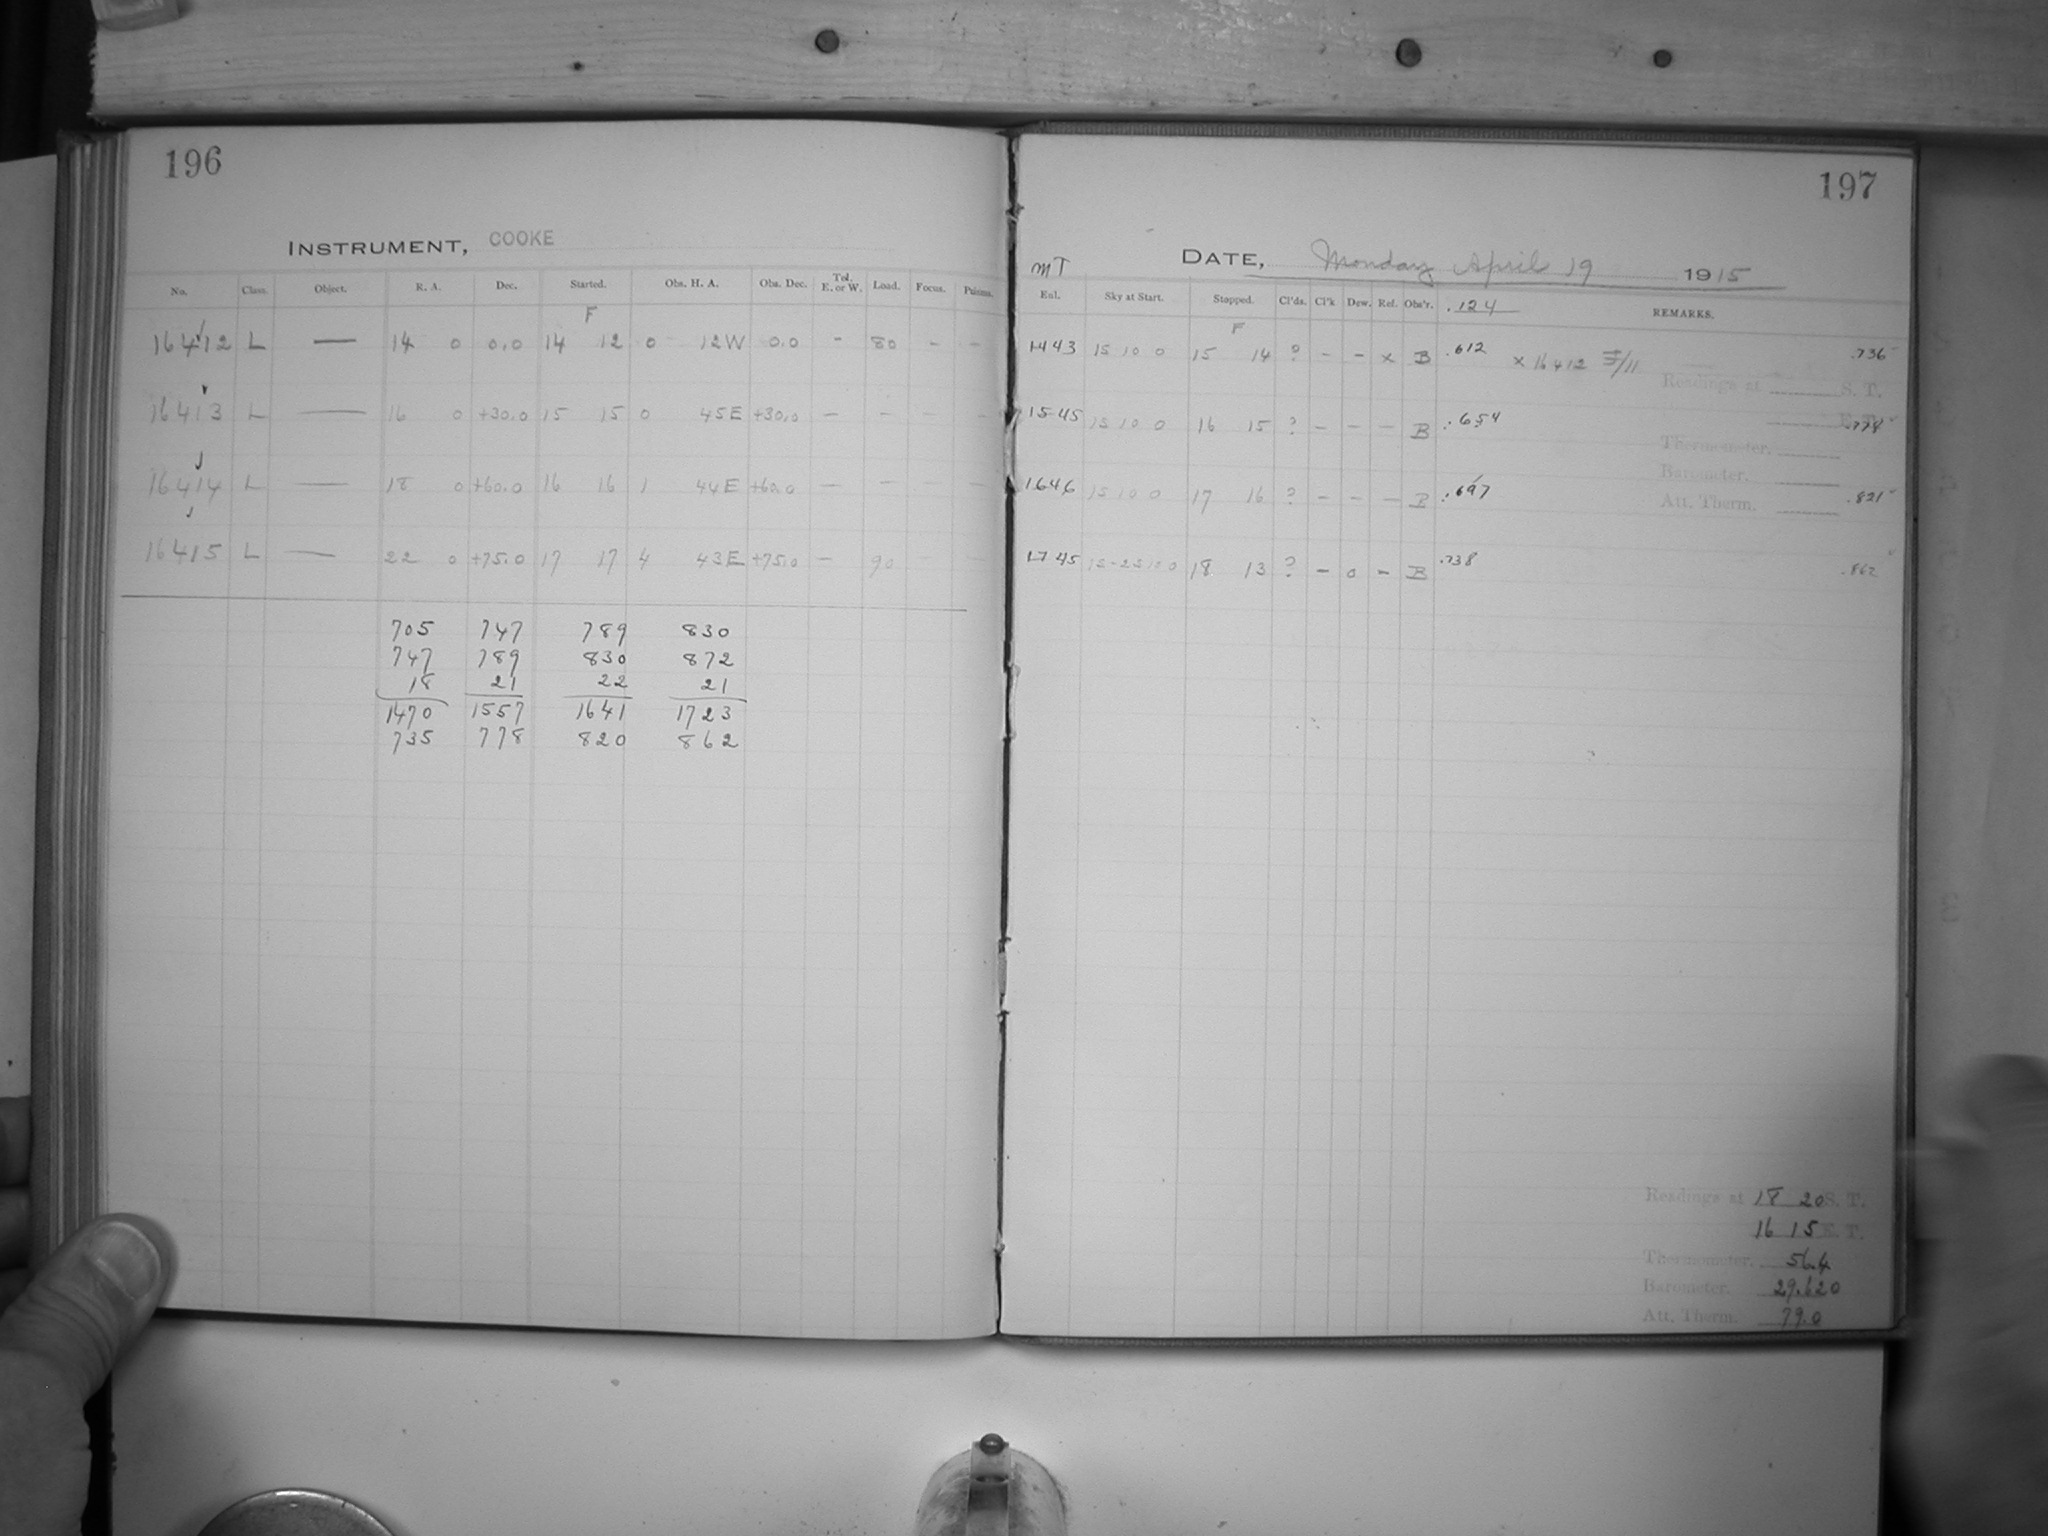 196
INSTRUMENT, COOKE
No. Class. Object. R. A. Dec. Started. Obs. H. A. Obs. Dec. Tel. E. or W. Load. Focus. Prisms.
F
16412 L — 14 0 0.0 14 12 0 12W 0.0 - 80 - -
16413 L — 16 0 +30.0 15 15 0 45E +30.0 - - - -
16414 L — 18 0 +60.0 16 16 1 44E +60.0 - - -
16415 L — 22 0 +75.0 17 17 4 43E +75.0 - 90 -
705 747 789 830
747 789 830 872
18 21 22 21
1470 1557 1641 1723
735 778 820 862
197
DATE, Monday April 19 1915
MT
Ext. Sky at Start. Stopped. Cl'ds. Cl'k Dew. Ref. Obs'r. .124 REMARKS.
F
1443 15 10 0 15 14 ? - - x B .612 x 16412 .736
Readings at S. T.
1545 15 10 0 16 15 ? - - - B .654 .778
Thermometer.
Barometer.
1646 15 10 0 17 16 ? - - - B .697 .821
Att. Therm.
1745 18 13 ? - 0 - B .738 .862
Readings at 18 20 S. T.
16 15 E. T.
Thermometer. 56.4
Barometer. 29.620
Att. Therm. 79.0